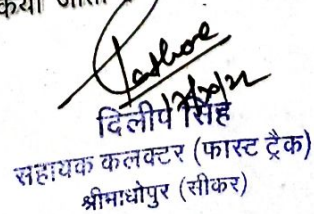 किया जाता
Rathore
दिलीप सिंह
सहायक कलक्टर (फास्ट ट्रैक)
श्रीमाधोपुर (सीकर)